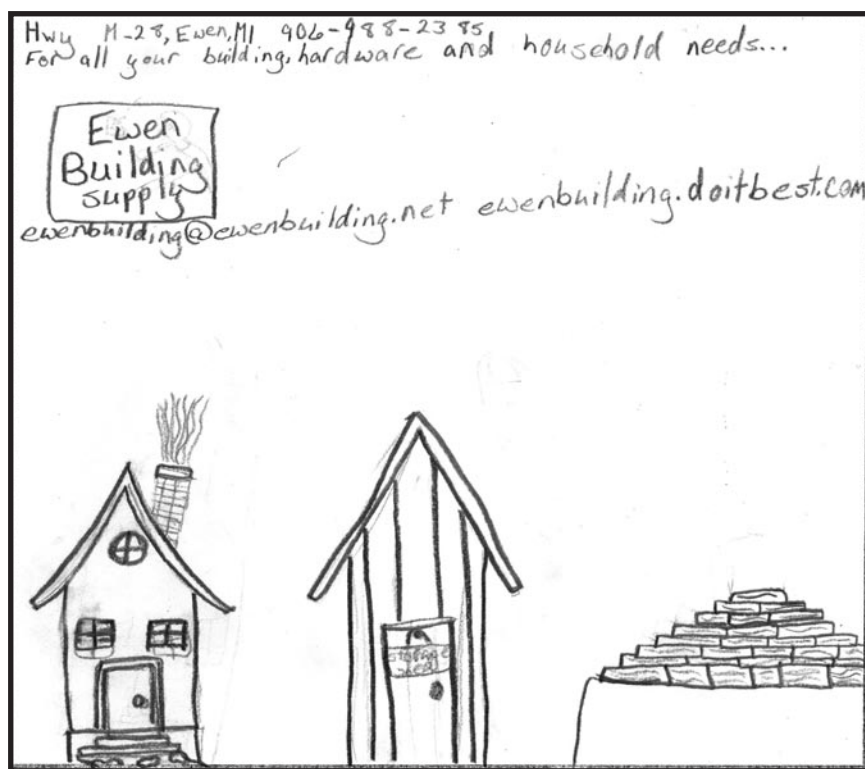 Hwy M-28, Ewen, MI 906-988-2385
For all your building, hardware and household needs...
Ewen
Building
supply
ewenbuilding@ewenbuilding.net ewenbuilding.doitbest.com
storage
shed